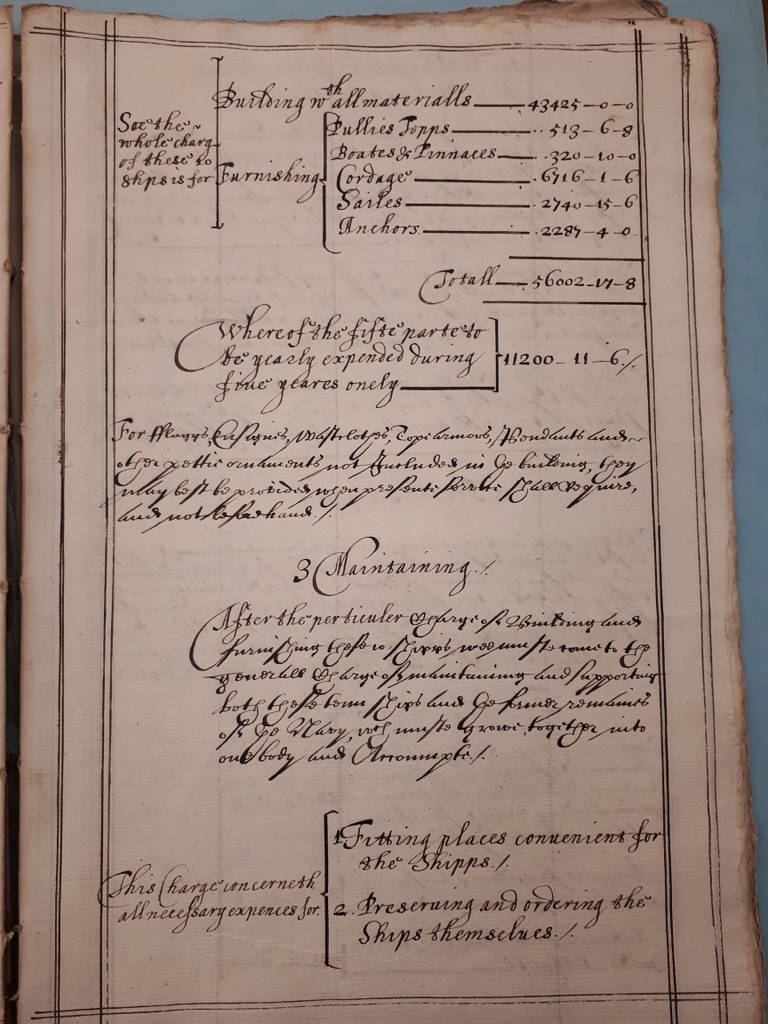 Building wth all materialls 43425-0-0
Soe the
whole charg
of these 10
Ships is for
Furnishing
Pullies Topps 513-6-8
Boates & Pinnaces 320-10-0
Cordage 6716-1-6
Sailes 2740-15-6
Anchors 2287-4-0
Totall 56002-17-8
Whereof the fifte parte to
be yearly expended during
five yeares onely
11200-11-6./.
For fflaggs, Ensignes, Wastclothes, Topearmors, Pendants and
other pettie ornaments not Included in ye building, they
may best be provided when presente service shall require,
and not beforehand./.
3 Maintaining./.
After the perticuler Charge of Building and
furnishing these 10 shipps wee muste come to the
generall Charge of maintaining and supporting
both these tenn ships and ye former remaines
of ye Navy, wch muste growe together into
one body and Accompte./.
This Charge concerneth
all necessary expences for
1. Fitting places convenient for
the Shipps./.
2. Preserving and ordering the
Ships themselves./.